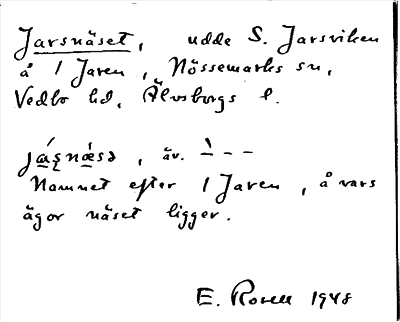 Jarsnäset, udde S. Jarsviken
å 1 Jaren, Nössemarks sn,
Vedbo hd, Älvsborgs l.
, äv. ˋ – –
Namnet efter 1 Jaren, å vars
ägor näset ligger.
E. Rosell 1948